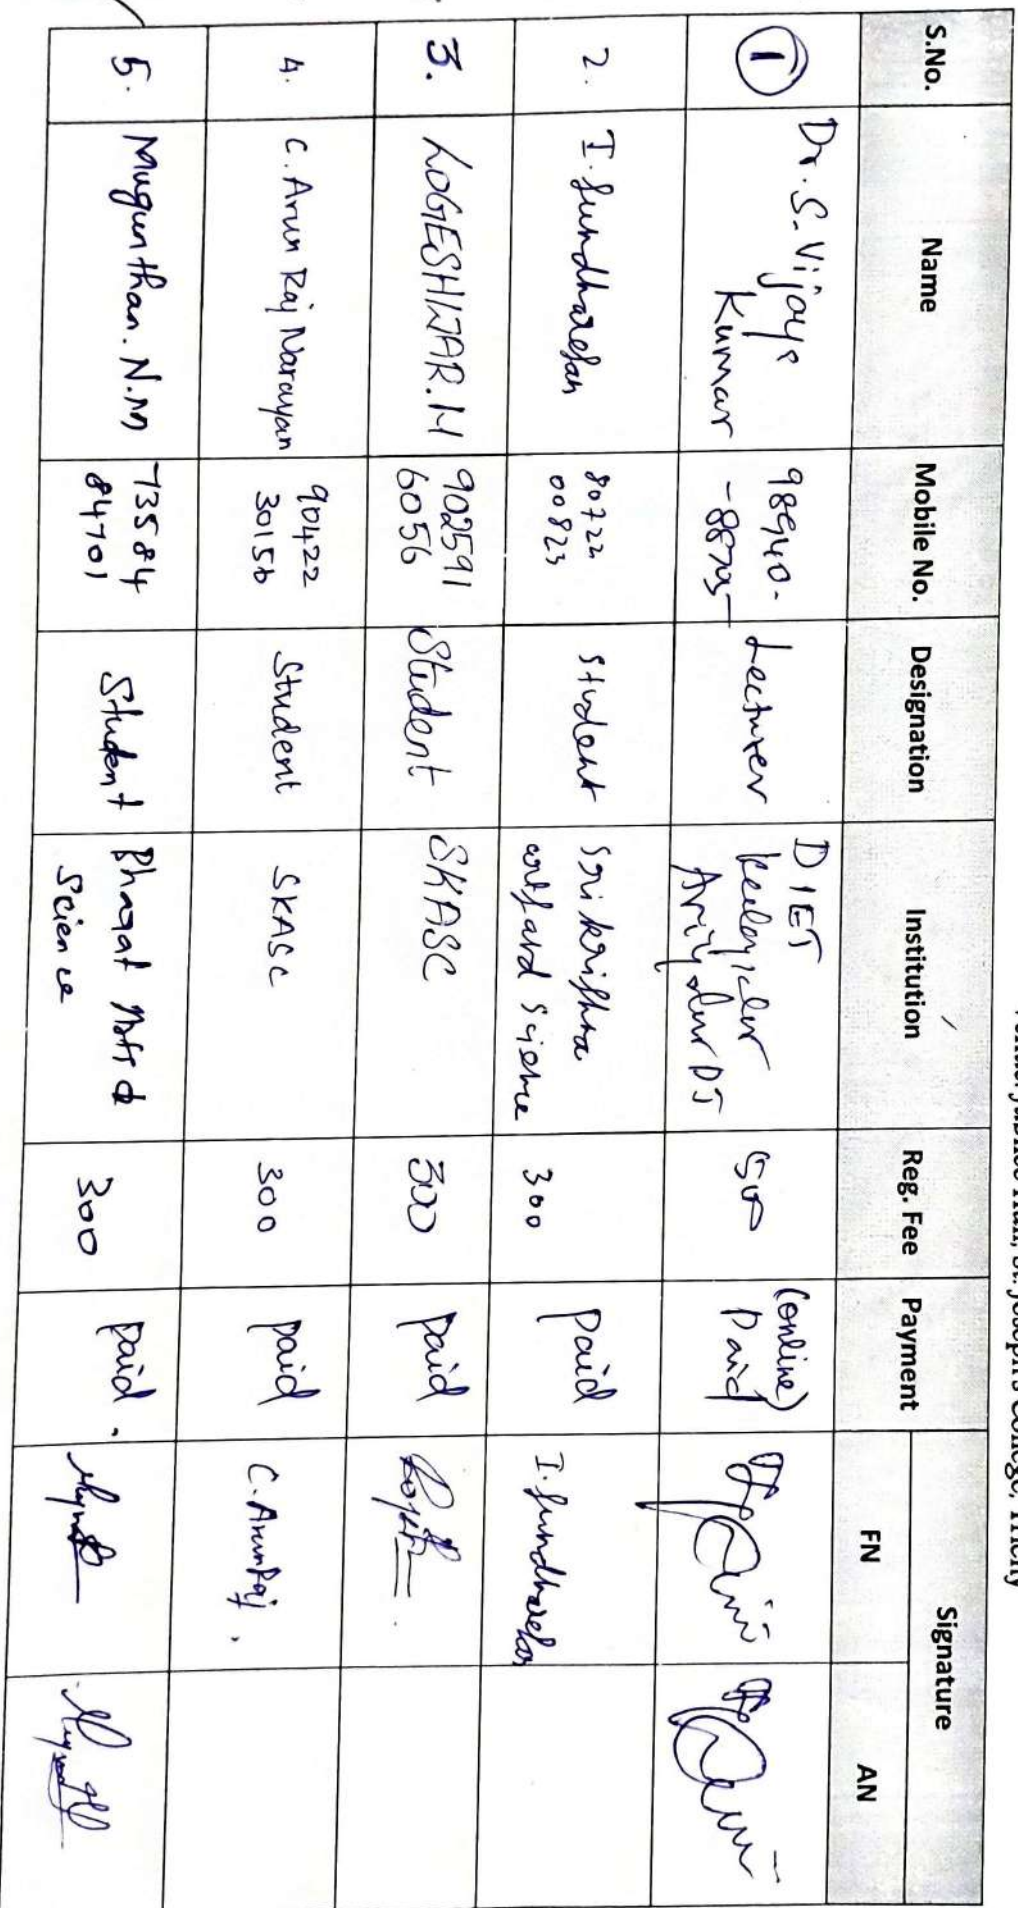 Jubilee Hall, St. Joseph's College, Trichy
S.No. Name Mobile No. Designation Institution Reg. Fee Payment Signature
FN AN
1 Dr. S. Vijaya Kumar 98940- Lecturer DIET (online) Paid
2. I. Sundharesan 80722 00823 student Sri krishna and Science 300 paid I. Sundharesan
3. LOGESHWAR. M 902591 6056 Student SKASC 300 paid
4. C. Arun Raj Narayan 90422 30156 Student SKASC 300 paid C. ArunRaj.
5. Mugunthan. N.M 73584 84701 Student Science 300 paid.